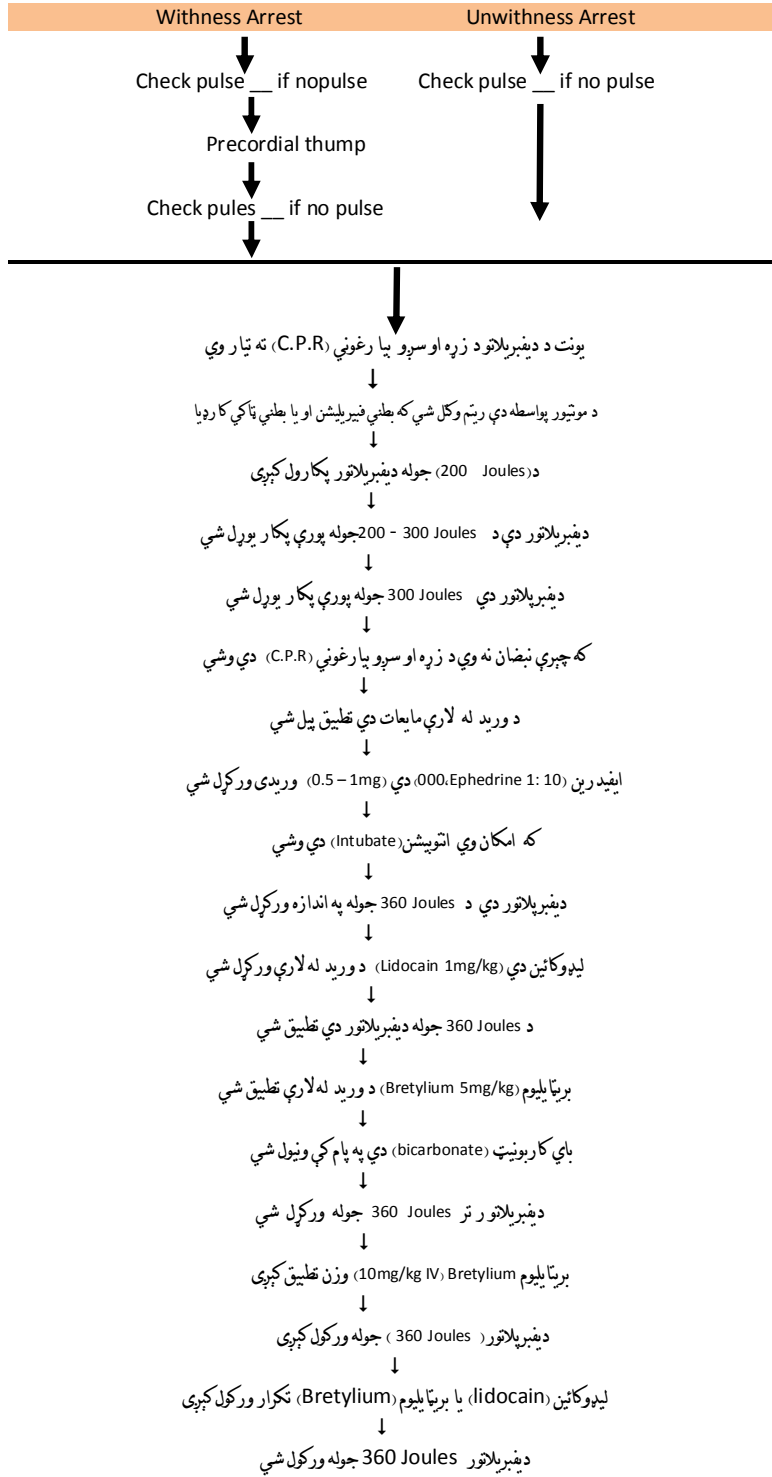 Withness Arrest
Unwithness Arrest
Check pulse __ if nopulse
Check pulse __ if no pulse
Precordial thump
Check pules __ if no pulse
یونت د دیفبریلاتو د زړه او سږو بیا رغونې (C.P.R) ته تیار وي
↓
د مونتیور پواسطه دې ریتم وکتل شي که بطني فبیریلیشن او یا بطني ټاکي کارډیا
↓
د (200 Joules) جوله دیفبریلاتور پکارول کېږی
↓
دیفبریلاتور دې د 200 - 300 Joules جوله پورې پکار یوړل شي
↓
دیفبریلاتور دې 300 Joules جوله پورې پکار یوړل شي
↓
که چېرې نبضان نه وي د زړه او سږو بیا رغونې (C.P.R) دې وشي
↓
د ورید له لارې مایعات دې تطبیق پیل شي
↓
ایفیدرین (000,Ephedrine 1: 10) دې (0.5 – 1mg) وریدی ورکړل شي
↓
که امکان وي انتوبیشن (Intubate) دې وشي
↓
دیفبریلاتور دې د 360 Joules جوله په اندازه ورکړل شي
↓
لیډوکائین دې (Lidocain 1mg/kg) د ورید له لارې ورکړل شي
↓
د 360 Joules جوله دیفبریلاتور دې تطبیق شي
↓
بریټایلیوم (Bretylium 5mg/kg) د ورید له لارې تطبیق شي
↓
باي کاربونیټ (bicarbonate) دې په پام کې ونیول شي
↓
دیفبریلاتور تر 360 Joules جوله ورکړل شي
↓
بریټایلیوم Bretylium (10mg/kg IV) وزن تطبیق کېږی
↓
دیفبریلاتور (360 Joules) جوله ورکول کېږی
↓
لیډوکائین (lidocain) یا بریټایلیوم (Bretylium) تکرار ورکول کېږی
↓
دیفبریلاتور 360 Joules جوله ورکول شي